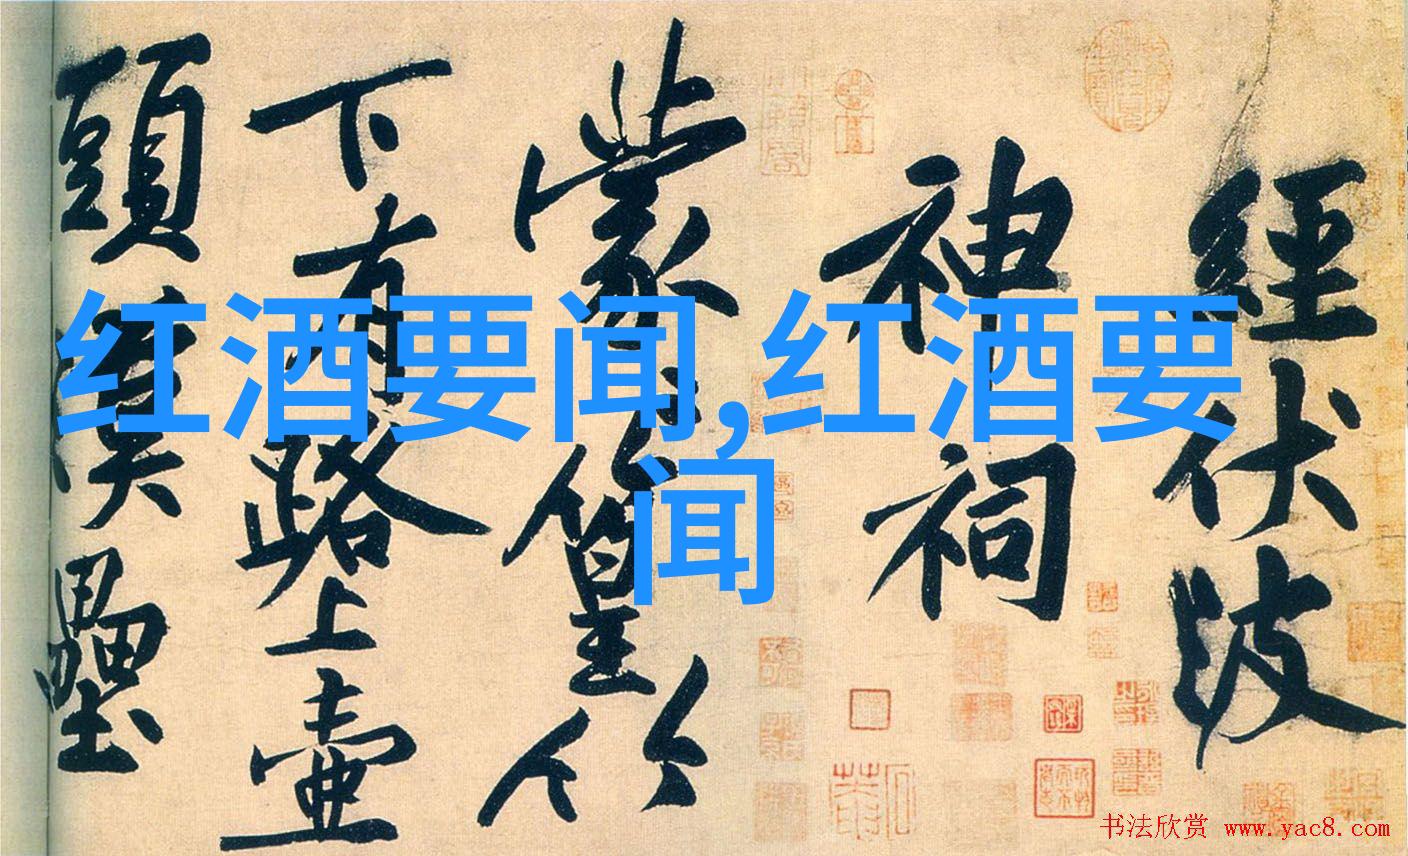 經伏波
神祠
蒙蒙篁竹
下有路上壺
頭漢壘
红酒要闻,红酒要
闻
书法欣赏 www.yac8.com